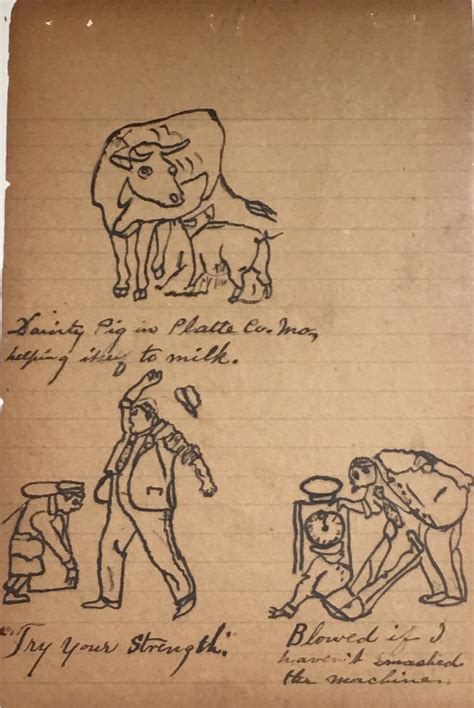 Dainty Pig in Platte Co. Mo,
helping itself to milk.
"Try your Strength."
Blowed if I
haven't smashed
the machine.